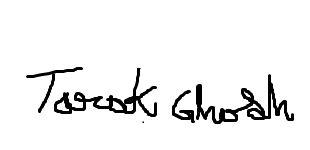 Tarak Ghosh